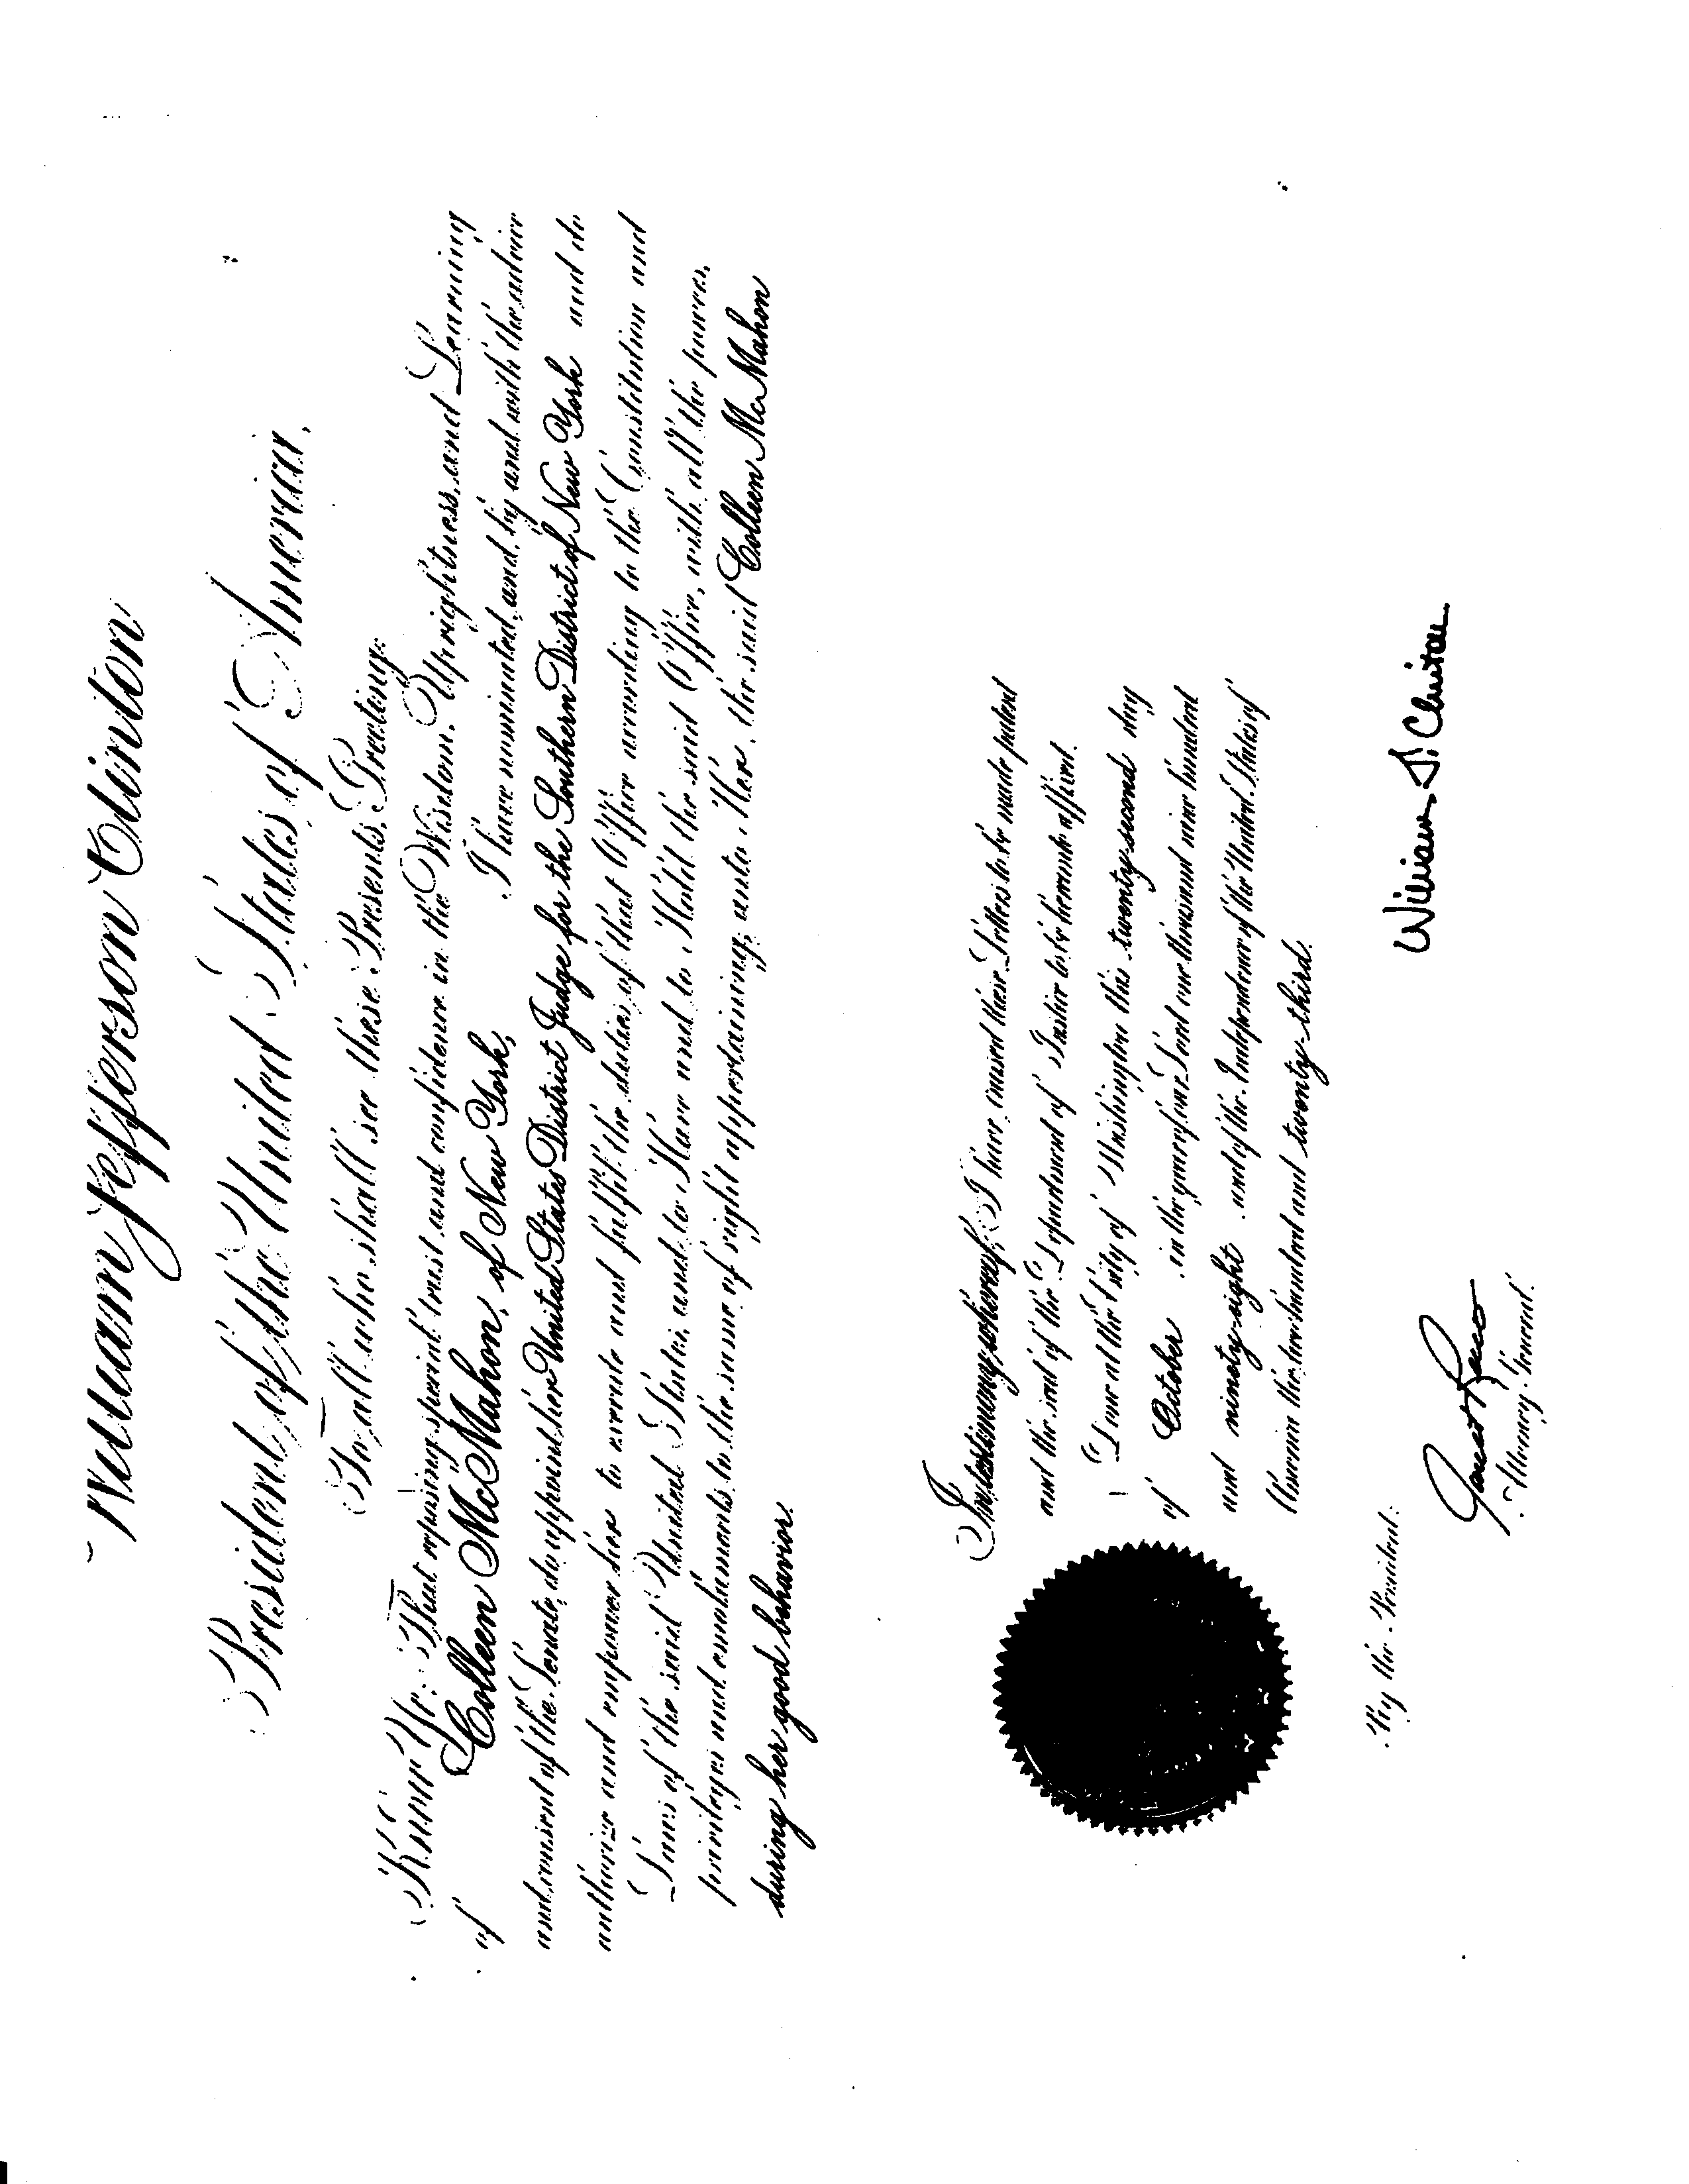 William Jefferson Clinton
President of the United States of America,
To all who shall see these Presents, Greeting:
Know Ye; That reposing special trust and confidence in the Wisdom, Uprightness, and Learning
of Colleen McMahon, of New York, I have nominated, and, by and with the advice
and consent of the Senate, do appoint her United States District Judge for the Southern District of New York and do
authorize and empower her to execute and fulfil the duties of that Office according to the Constitution and
Laws of the said United States, and to Have and to Hold the said Office, with all the powers,
privileges and emoluments to the same of right appertaining, unto Her, the said Colleen McMahon
during her good behavior.
In testimony whereof, I have caused these Letters to be made patent
and the seal of the Department of Justice to be hereunto affixed.
Done at the City of Washington this twenty-second day
of October in the year of our Lord one thousand nine hundred
and ninety-eight and of the Independence of the United States of
America the two hundred and twenty-third.
William J. Clinton
By the President:
Janet Reno
Attorney General.